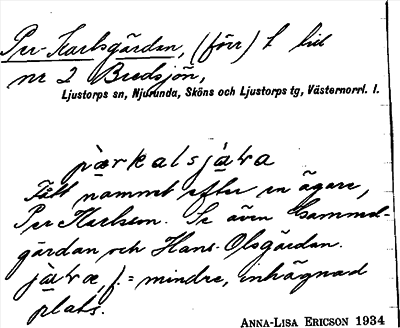 Per-Karlsgårdan, (förr) t. hid
nr 2 Bredsjön,
Ljustorps sn, Njurunda, Sköns och Ljustorps tg, Västernorrl. l.
pàrkalsjàwa
Fått namnet efter en ägare,
Per Karlson. Se även Gammel-
gårdan och Hans-Olsgårdan.
jàwa, f. = mindre, inhägnad
plats.
ANNA-LISA ERICSON 1934